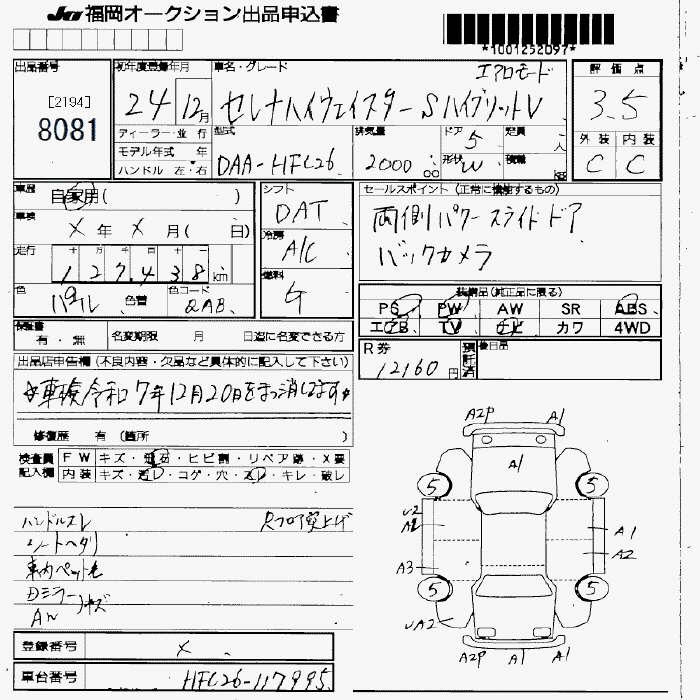 JU 福岡オークション出品申込書
*1001252097*
出品番号
[2194]
8081
初年度登録年月
24 12月
車名・グレード
エアロモード
セレナハイウェイスターSハイブリットV
評価点
3.5
外装 内装
C C
ディーラー・並行
モデル年式 年
ハンドル 左・右
型式
DAA-HFC26
排気量
2000 cc
ドア
5
形状
W
定員
人
積載
kg
車歴
自家用( )
車検
× 年 × 月( 日)
走行
127,438km
色
パール
色替
色コード
QAB
シフト
DAT
冷房
A/C
燃料
G
セールスポイント (正常に機能するもの)
両側パワースライドドア
バックカメラ
装備品(純正品に限る)
PS PW AW SR ABS
エアB TV ナビ カワ 4WD
保証書
有・無
名変期限 月 日迄に名変できる方
R券
12160円
預託済
後日品
出品店申告欄 (不良内容・欠品など具体的に記入して下さい)
☆車検令和7年12月20日まっ消します☆
修復歴 有 (箇所 )
検査員記入欄
FW キズ・飛石・ヒビ割・リペア跡・X要
内装 キズ・汚レ・コゲ・穴・スレ・キレ・破レ
ハンドルスレ
Rフロア突上げ
シートヘタリ
車内ペット毛
Dミラーキズ
AW
A2P A1
A1
5 5
U2
A2
A1
A2
A3
5 5
UA2
A2P A1 A1
登録番号
×
車台番号
HFC26-117995